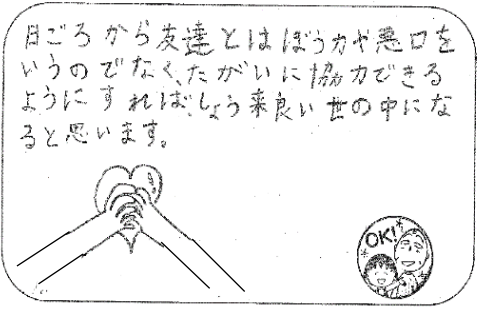 日ごろから友達とはぼう力や悪口を
いうのでなく、たがいに協力できる
ようにすれば、しょう来良い世の中にな
ると思います。
OK!